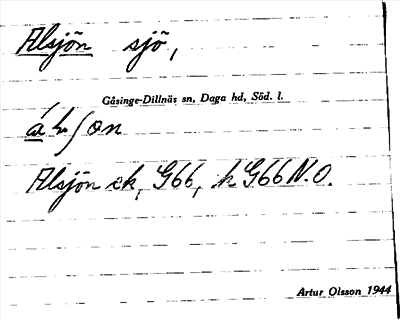 Alsjön sjö,
Gåsinge-Dillnäs sn, Daga hd, Söd. l.
Alsjön ek, G66, k G66 N.O.
Artur Olsson 1944